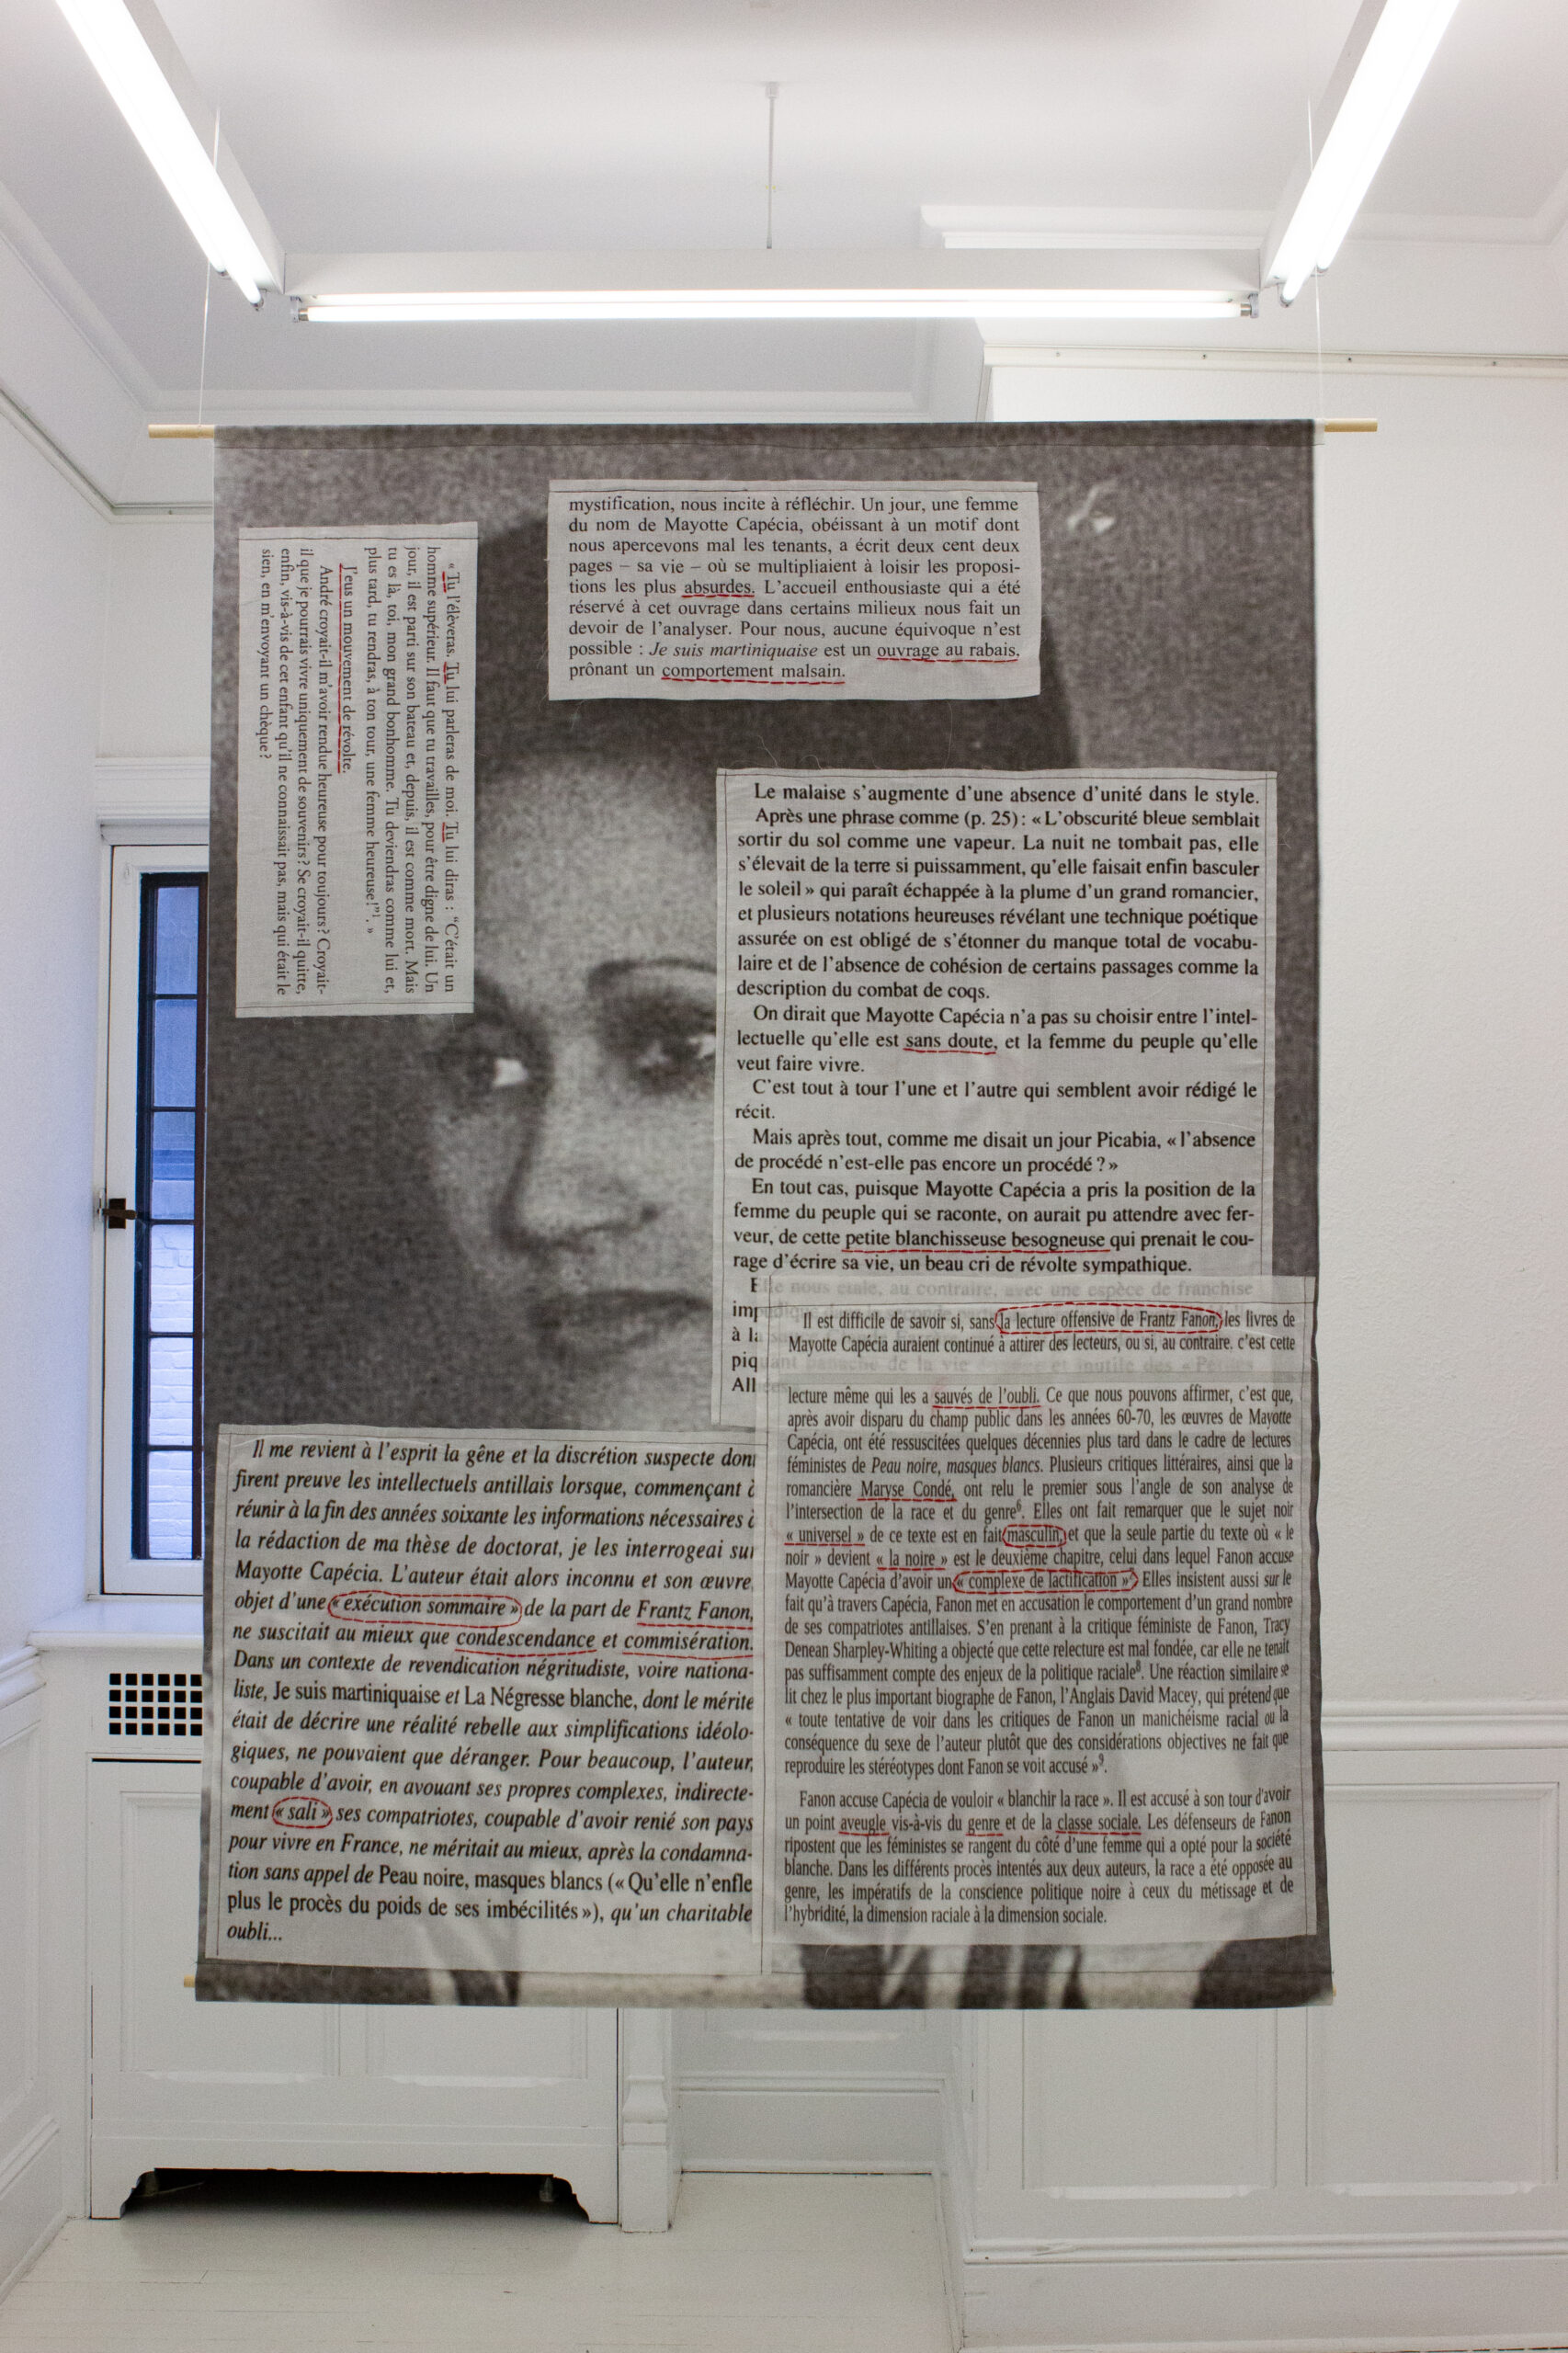 « Tu l'élèveras. Tu lui parleras de moi. Tu lui diras : "C'était un
homme supérieur. Il faut que tu travailles, pour être digne de lui. Un
jour, il est parti sur son bateau et, depuis, il est comme mort. Mais
tu es là, toi, mon grand bonhomme. Tu deviendras comme lui et,
plus tard, tu rendras, à ton tour, une femme heureuse!"¹. »
J'eus un mouvement de révolte.
André croyait-il m'avoir rendue heureuse pour toujours? Croyait-
il que je pourrais vivre uniquement de souvenirs? Se croyait-il quitte,
enfin, vis-à-vis de cet enfant qu'il ne connaissait pas, mais qui était le
sien, en m'envoyant un chèque?
mystification, nous incite à réfléchir. Un jour, une femme
du nom de Mayotte Capécia, obéissant à un motif dont
nous apercevons mal les tenants, a écrit deux cent deux
pages – sa vie – où se multipliaient à loisir les proposi-
tions les plus absurdes. L'accueil enthousiaste qui a été
réservé à cet ouvrage dans certains milieux nous fait un
devoir de l'analyser. Pour nous, aucune équivoque n'est
possible : Je suis martiniquaise est un ouvrage au rabais,
prônant un comportement malsain.
Le malaise s'augmente d'une absence d'unité dans le style.
Après une phrase comme (p. 25) : « L'obscurité bleue semblait
sortir du sol comme une vapeur. La nuit ne tombait pas, elle
s'élevait de la terre si puissamment, qu'elle faisait enfin basculer
le soleil » qui paraît échappée à la plume d'un grand romancier,
et plusieurs notations heureuses révélant une technique poétique
assurée on est obligé de s'étonner du manque total de vocabu-
laire et de l'absence de cohésion de certains passages comme la
description du combat de coqs.
On dirait que Mayotte Capécia n'a pas su choisir entre l'intel-
lectuelle qu'elle est sans doute, et la femme du peuple qu'elle
veut faire vivre.
C'est tout à tour l'une et l'autre qui semblent avoir rédigé le
récit.
Mais après tout, comme me disait un jour Picabia, « l'absence
de procédé n'est-elle pas encore un procédé ? »
En tout cas, puisque Mayotte Capécia a pris la position de la
femme du peuple qui se raconte, on aurait pu attendre avec fer-
veur, de cette petite blanchisseuse besogneuse qui prenait le cou-
rage d'écrire sa vie, un beau cri de révolte sympathique.
Elle nous étale, au contraire, avec une espèce de franchise
imp
à la
piq
All
Il me revient à l'esprit la gêne et la discrétion suspecte dont
firent preuve les intellectuels antillais lorsque, commençant à
réunir à la fin des années soixante les informations nécessaires à
la rédaction de ma thèse de doctorat, je les interrogeai sur
Mayotte Capécia. L'auteur était alors inconnu et son œuvre,
objet d'une « exécution sommaire » de la part de Frantz Fanon,
ne suscitait au mieux que condescendance et commisération.
Dans un contexte de revendication négritudiste, voire nationa-
liste, Je suis martiniquaise et La Négresse blanche, dont le mérite
était de décrire une réalité rebelle aux simplifications idéolo-
giques, ne pouvaient que déranger. Pour beaucoup, l'auteur,
coupable d'avoir, en avouant ses propres complexes, indirecte-
ment « sali » ses compatriotes, coupable d'avoir renié son pays
pour vivre en France, ne méritait au mieux, après la condamna-
tion sans appel de Peau noire, masques blancs (« Qu'elle n'enfle
plus le procès du poids de ses imbécilités »), qu'un charitable
oubli...
Il est difficile de savoir si, sans la lecture offensive de Frantz Fanon, les livres de
Mayotte Capécia auraient continué à attirer des lecteurs, ou si, au contraire. c'est cette
lecture même qui les a sauvés de l'oubli. Ce que nous pouvons affirmer, c'est que,
après avoir disparu du champ public dans les années 60-70, les œuvres de Mayotte
Capécia, ont été ressuscitées quelques décennies plus tard dans le cadre de lectures
féministes de Peau noire, masques blancs. Plusieurs critiques littéraires, ainsi que la
romancière Maryse Condé, ont relu le premier sous l'angle de son analyse de
l'intersection de la race et du genre⁶. Elles ont fait remarquer que le sujet noir
« universel » de ce texte est en fait masculin, et que la seule partie du texte où « le
noir » devient « la noire » est le deuxième chapitre, celui dans lequel Fanon accuse
Mayotte Capécia d'avoir un « complexe de lactification »⁷ Elles insistent aussi sur le
fait qu'à travers Capécia, Fanon met en accusation le comportement d'un grand nombre
de ses compatriotes antillaises. S'en prenant à la critique féministe de Fanon, Tracy
Denean Sharpley-Whiting a objecté que cette relecture est mal fondée, car elle ne tenait
pas suffisamment compte des enjeux de la politique raciale⁸. Une réaction similaire se
lit chez le plus important biographe de Fanon, l'Anglais David Macey, qui prétend que
« toute tentative de voir dans les critiques de Fanon un manichéisme racial ou la
conséquence du sexe de l'auteur plutôt que des considérations objectives ne fait que
reproduire les stéréotypes dont Fanon se voit accusé »⁹.
Fanon accuse Capécia de vouloir « blanchir la race ». Il est accusé à son tour d'avoir
un point aveugle vis-à-vis du genre et de la classe sociale. Les défenseurs de Fanon
ripostent que les féministes se rangent du côté d'une femme qui a opté pour la société
blanche. Dans les différents procès intentés aux deux auteurs, la race a été opposée au
genre, les impératifs de la conscience politique noire à ceux du métissage et de
l'hybridité, la dimension raciale à la dimension sociale.